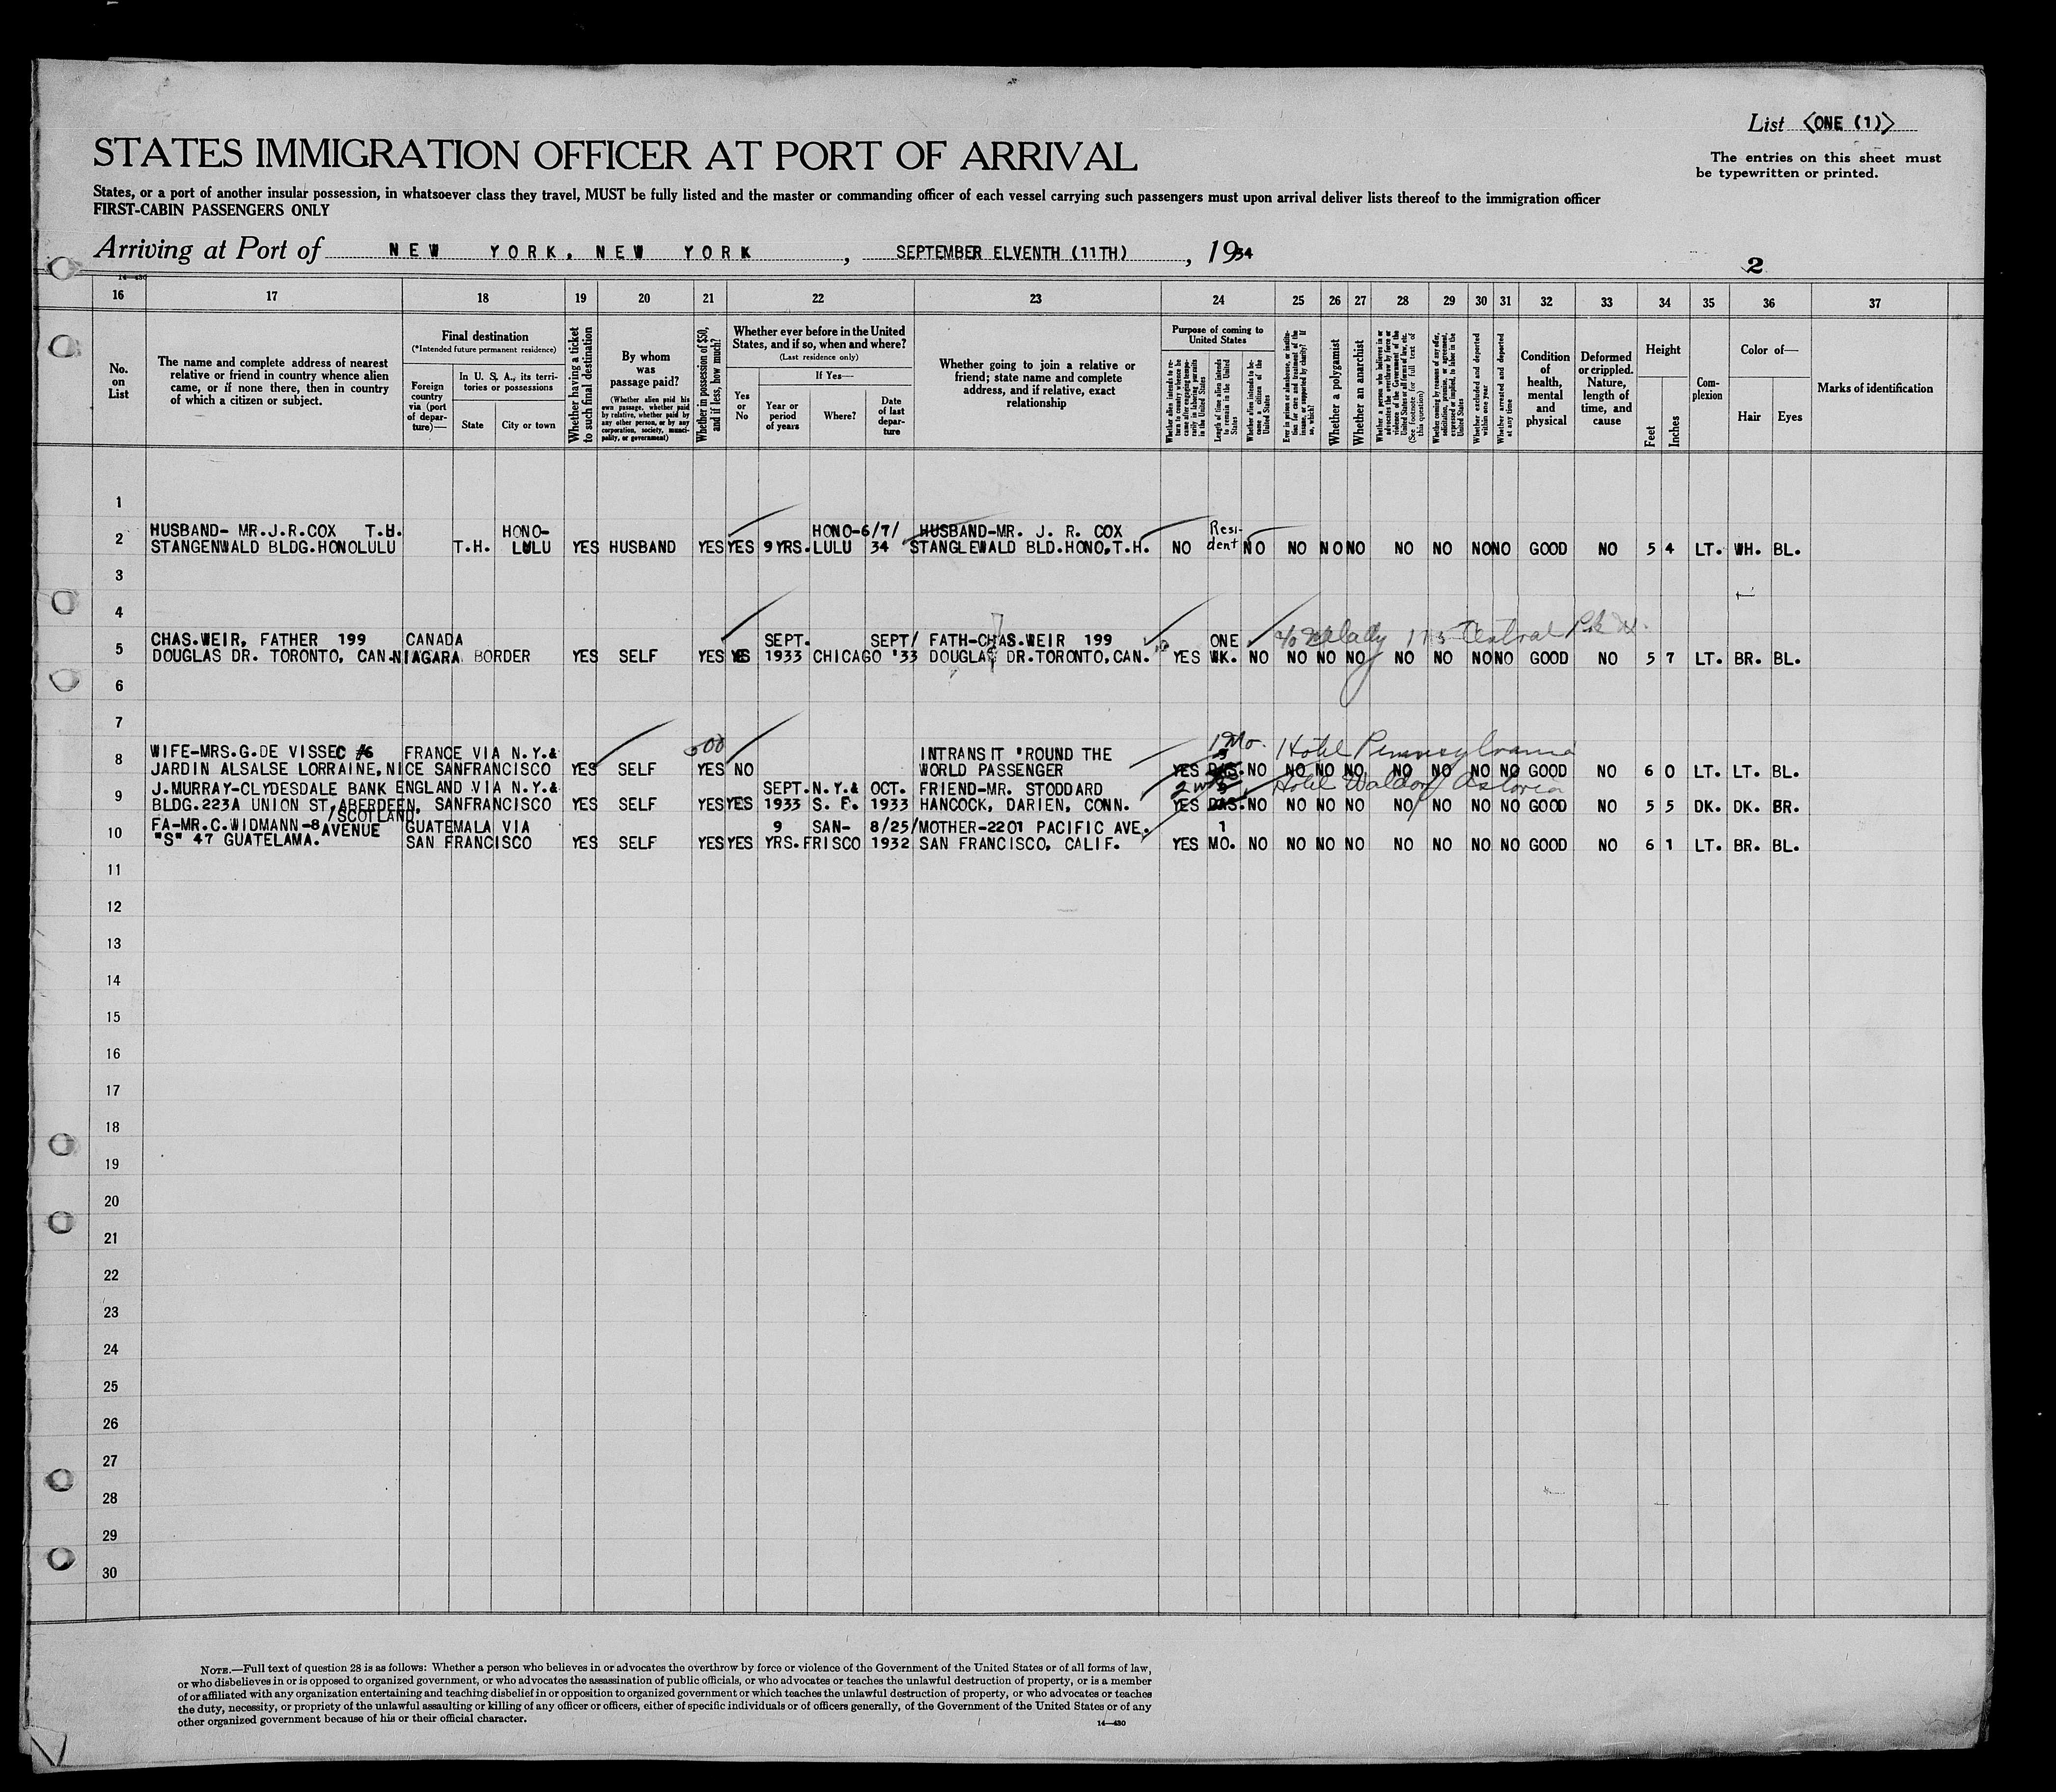 List <ONE (1)>
STATES IMMIGRATION OFFICER AT PORT OF ARRIVAL
The entries on this sheet must
be typewritten or printed.
States, or a port of another insular possession, in whatsoever class they travel, MUST be fully listed and the master or commanding officer of each vessel carrying such passengers must upon arrival deliver lists thereof to the immigration officer
FIRST-CABIN PASSENGERS ONLY
Arriving at Port of NEW YORK, NEW YORK, SEPTEMBER ELVENTH (11TH), 1934
2
14-430
16 17 18 19 20 21 22 23 24 25 26 27 28 29 30 31 32 33 34 35 36 37
No.
on
List
The name and complete address of nearest
relative or friend in country whence alien
came, or if none there, then in country
of which a citizen or subject.
Final destination
(*Intended future permanent residence)
Foreign
country
via (port
of depar-
ture)—
In U. S. A., its terri-
tories or possessions
State
City or town
Whether having a ticket
to such final destination
By whom
was
passage paid?
(Whether alien paid his
own passage, whether paid
by relative, whether paid by
any other person, or by any
corporation, society, munici-
pality, or government)
Whether in possession of $50,
and if less, how much?
Whether ever before in the United
States, and if so, when and where?
(Last residence only)
Yes
or
No
If Yes—
Year or
period
of years
Where?
Date
of last
depar-
ture
Whether going to join a relative or
friend; state name and complete
address, and if relative, exact
relationship
Purpose of coming to
United States
Whether alien intends to re-
turn to country whence he
came after engaging tempo-
rarily in laboring pursuits
in the United States
Length of time alien intends
to remain in the United
States
Whether alien intends to be-
come a citizen of the
United States
Ever in prison or almshouse, or institu-
tion for care and treatment of the
insane, or supported by charity? If
so, which?
Whether a polygamist
Whether an anarchist
Whether a person who believes in or
advocates the overthrow by force or
violence of the Government of the
United States or all forms of law, etc.
(See footnote for full text of
this question)
Whether coming by reasons of any offer,
solicitation, promise, or agreement,
expressed or implied, to labor in the
United States
Whether excluded and deported
within one year
Whether arrested and deported
at any time
Condition
of
health,
mental
and
physical
Deformed
or crippled.
Nature,
length of
time, and
cause
Height
Feet
Inches
Com-
plexion
Color of—
Hair Eyes
Marks of identification
1
HUSBAND- MR.J.R.COX T.H. HONO- HONO-6/7/ HUSBAND-MR. J. R. COX Resi-
2 STANGENWALD BLDG.HONOLULU T.H. LULU YES HUSBAND YES YES 9YRS. LULU 34 STANGLEWALD BLD.HONO,T.H. NO dent NO NO NO NO NO NO NO NO GOOD NO 5 4 LT. WH. BL.
3
4
CHAS.WEIR, FATHER 199 CANADA SEPT. SEPT/ FATH-CHAS.WEIR 199 ONE 175 Central Pk
5 DOUGLAS DR. TORONTO, CAN. NIAGARA BORDER YES SELF YES YES 1933 CHICAGO '33 DOUGLAS DR.TORONTO,CAN. YES WK. NO NO NO NO NO NO NO NO GOOD NO 5 7 LT. BR. BL.
6
7
500
WIFE-MRS.G.DE VISSEC #6 FRANCE VIA N.Y.& INTRANSIT 'ROUND THE 1 Mo. Hotel Pennsylvania
8 JARDIN ALSALSE LORRAINE,NICE SANFRANCISCO YES SELF YES NO WORLD PASSENGER YES DAS. NO NO NO NO NO NO NO NO GOOD NO 6 0 LT. LT. BL.
J.MURRAY-CLYDESDALE BANK ENGLAND VIA N.Y.& SEPT. N.Y.& OCT. FRIEND-MR. STODDARD 2 w Hotel Waldorf Astoria
9 BLDG.223A UNION ST,ABERDEEN, SANFRANCISCO YES SELF YES YES 1933 S. F. 1933 HANCOCK, DARIEN, CONN. YES DAS. NO NO NO NO NO NO NO NO GOOD NO 5 5 DK. DK. BR.
/SCOTLAND.
FA-MR.C.WIDMANN-8 AVENUE GUATEMALA VIA 9 SAN- 8/25/ MOTHER-2201 PACIFIC AVE. 1
10 "S" 47 GUATELAMA. SAN FRANCISCO YES SELF YES YES YRS. FRISCO 1932 SAN FRANCISCO, CALIF. YES MO. NO NO NO NO NO NO NO NO GOOD NO 6 1 LT. BR. BL.
11
12
13
14
15
16
17
18
19
20
21
22
23
24
25
26
27
28
29
30
NOTE.—Full text of question 28 is as follows: Whether a person who believes in or advocates the overthrow by force or violence of the Government of the United States or of all forms of law,
or who disbelieves in or is opposed to organized government, or who advocates the assassination of public officials, or who advocates or teaches the unlawful destruction of property, or is a member
of or affiliated with any organization entertaining and teaching disbelief in or opposition to organized government or which teaches the unlawful destruction of property, or who advocates or teaches
the duty, necessity, or propriety of the unlawful assaulting or killing of any officer or officers, either of specific individuals or of officers generally, of the Government of the United States or of any
other organized government because of his or their official character.
14-430